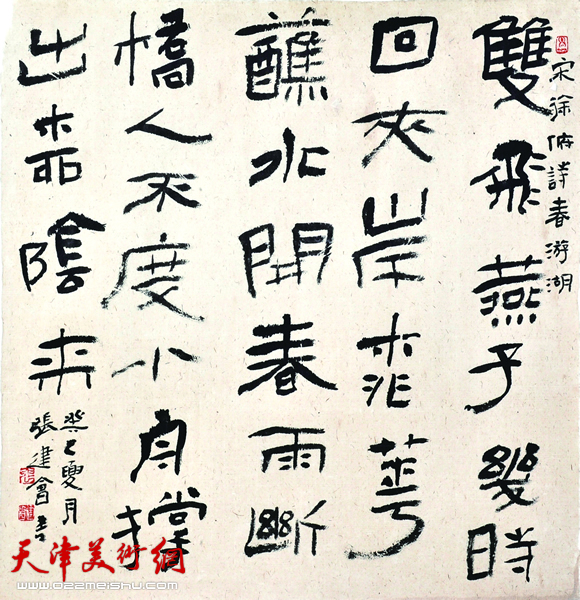 宋徐俯詩春游湖
雙飛燕子幾時
回夾岸桃華
醮水開春雨斷
橋人不度小舟撐
出柳陰來
癸巳夏月
張建會書
天津美術網
www.022meishu.com